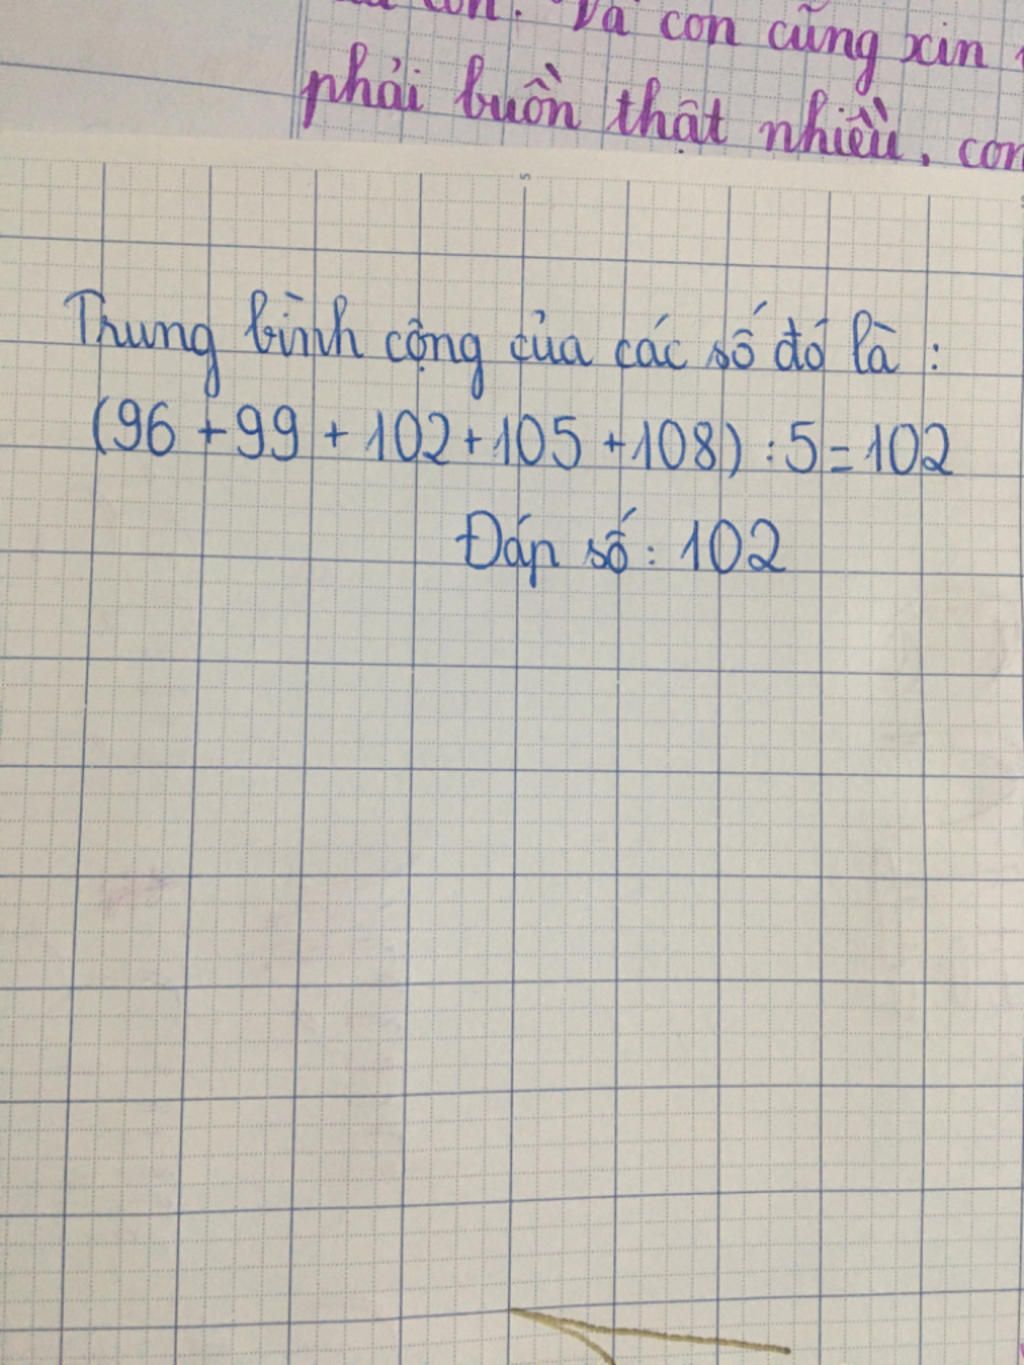 con. Và con cũng xin
phải buồn thật nhiều, con
Trung bình cộng của các số đó là :
(96 + 99 + 102 + 105 + 108) : 5 = 102
Đáp số : 102